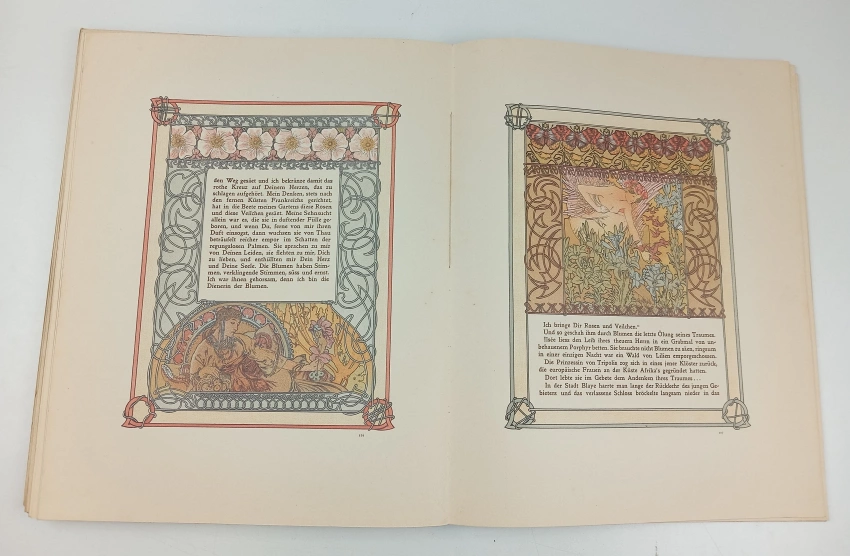 den Weg gesäet und ich bekränze damit das
rothe Kreuz auf Deinem Herzen, das zu
schlagen aufgehört. Mein Denken, stets nach
den fernen Küsten Frankreichs gerichtet,
hat in die Beete meines Gartens diese Rosen
und diese Veilchen gesäet. Meine Sehnsucht
allein war es, die sie in duftender Fülle ge-
boren, und wenn Du, ferne von mir ihren
Duft einsogst, dann wuchsen sie von Thau
beträufelt reicher empor im Schatten der
regungslosen Palmen. Sie sprachen zu mir
von Deinen Leiden, sie flehten zu mir, Dich
zu lieben, und enthüllten mir Dein Herz
und Deine Seele. Die Blumen haben Stim-
men, verklingende Stimmen, süss und ernst.
Ich war ihnen gehorsam, denn ich bin die
Dienerin der Blumen.
Ich bringe Dir Rosen und Veilchen.“
Und so geschah ihm durch Blumen die letzte Ölung seines Traumes.
Ilsée liess den Leib ihres theuern Herrn in ein Grabmal von un-
behauenem Porphyr betten. Sie brauchte nicht Blumen zu säen, ringsum
in einer einzigen Nacht war ein Wald von Lilien emporgeschossen.
Die Prinzessin von Tripolis zog sich in eines jener Klöster zurück,
die europäische Frauen an der Küste Afrika's gegründet hatten.
Dort lebte sie im Gebete dem Andenken ihres Traumes....
In der Stadt Blaye harrte man lange der Rückkehr des jungen Ge-
bieters und das verlassene Schloss bröckelte langsam nieder in das